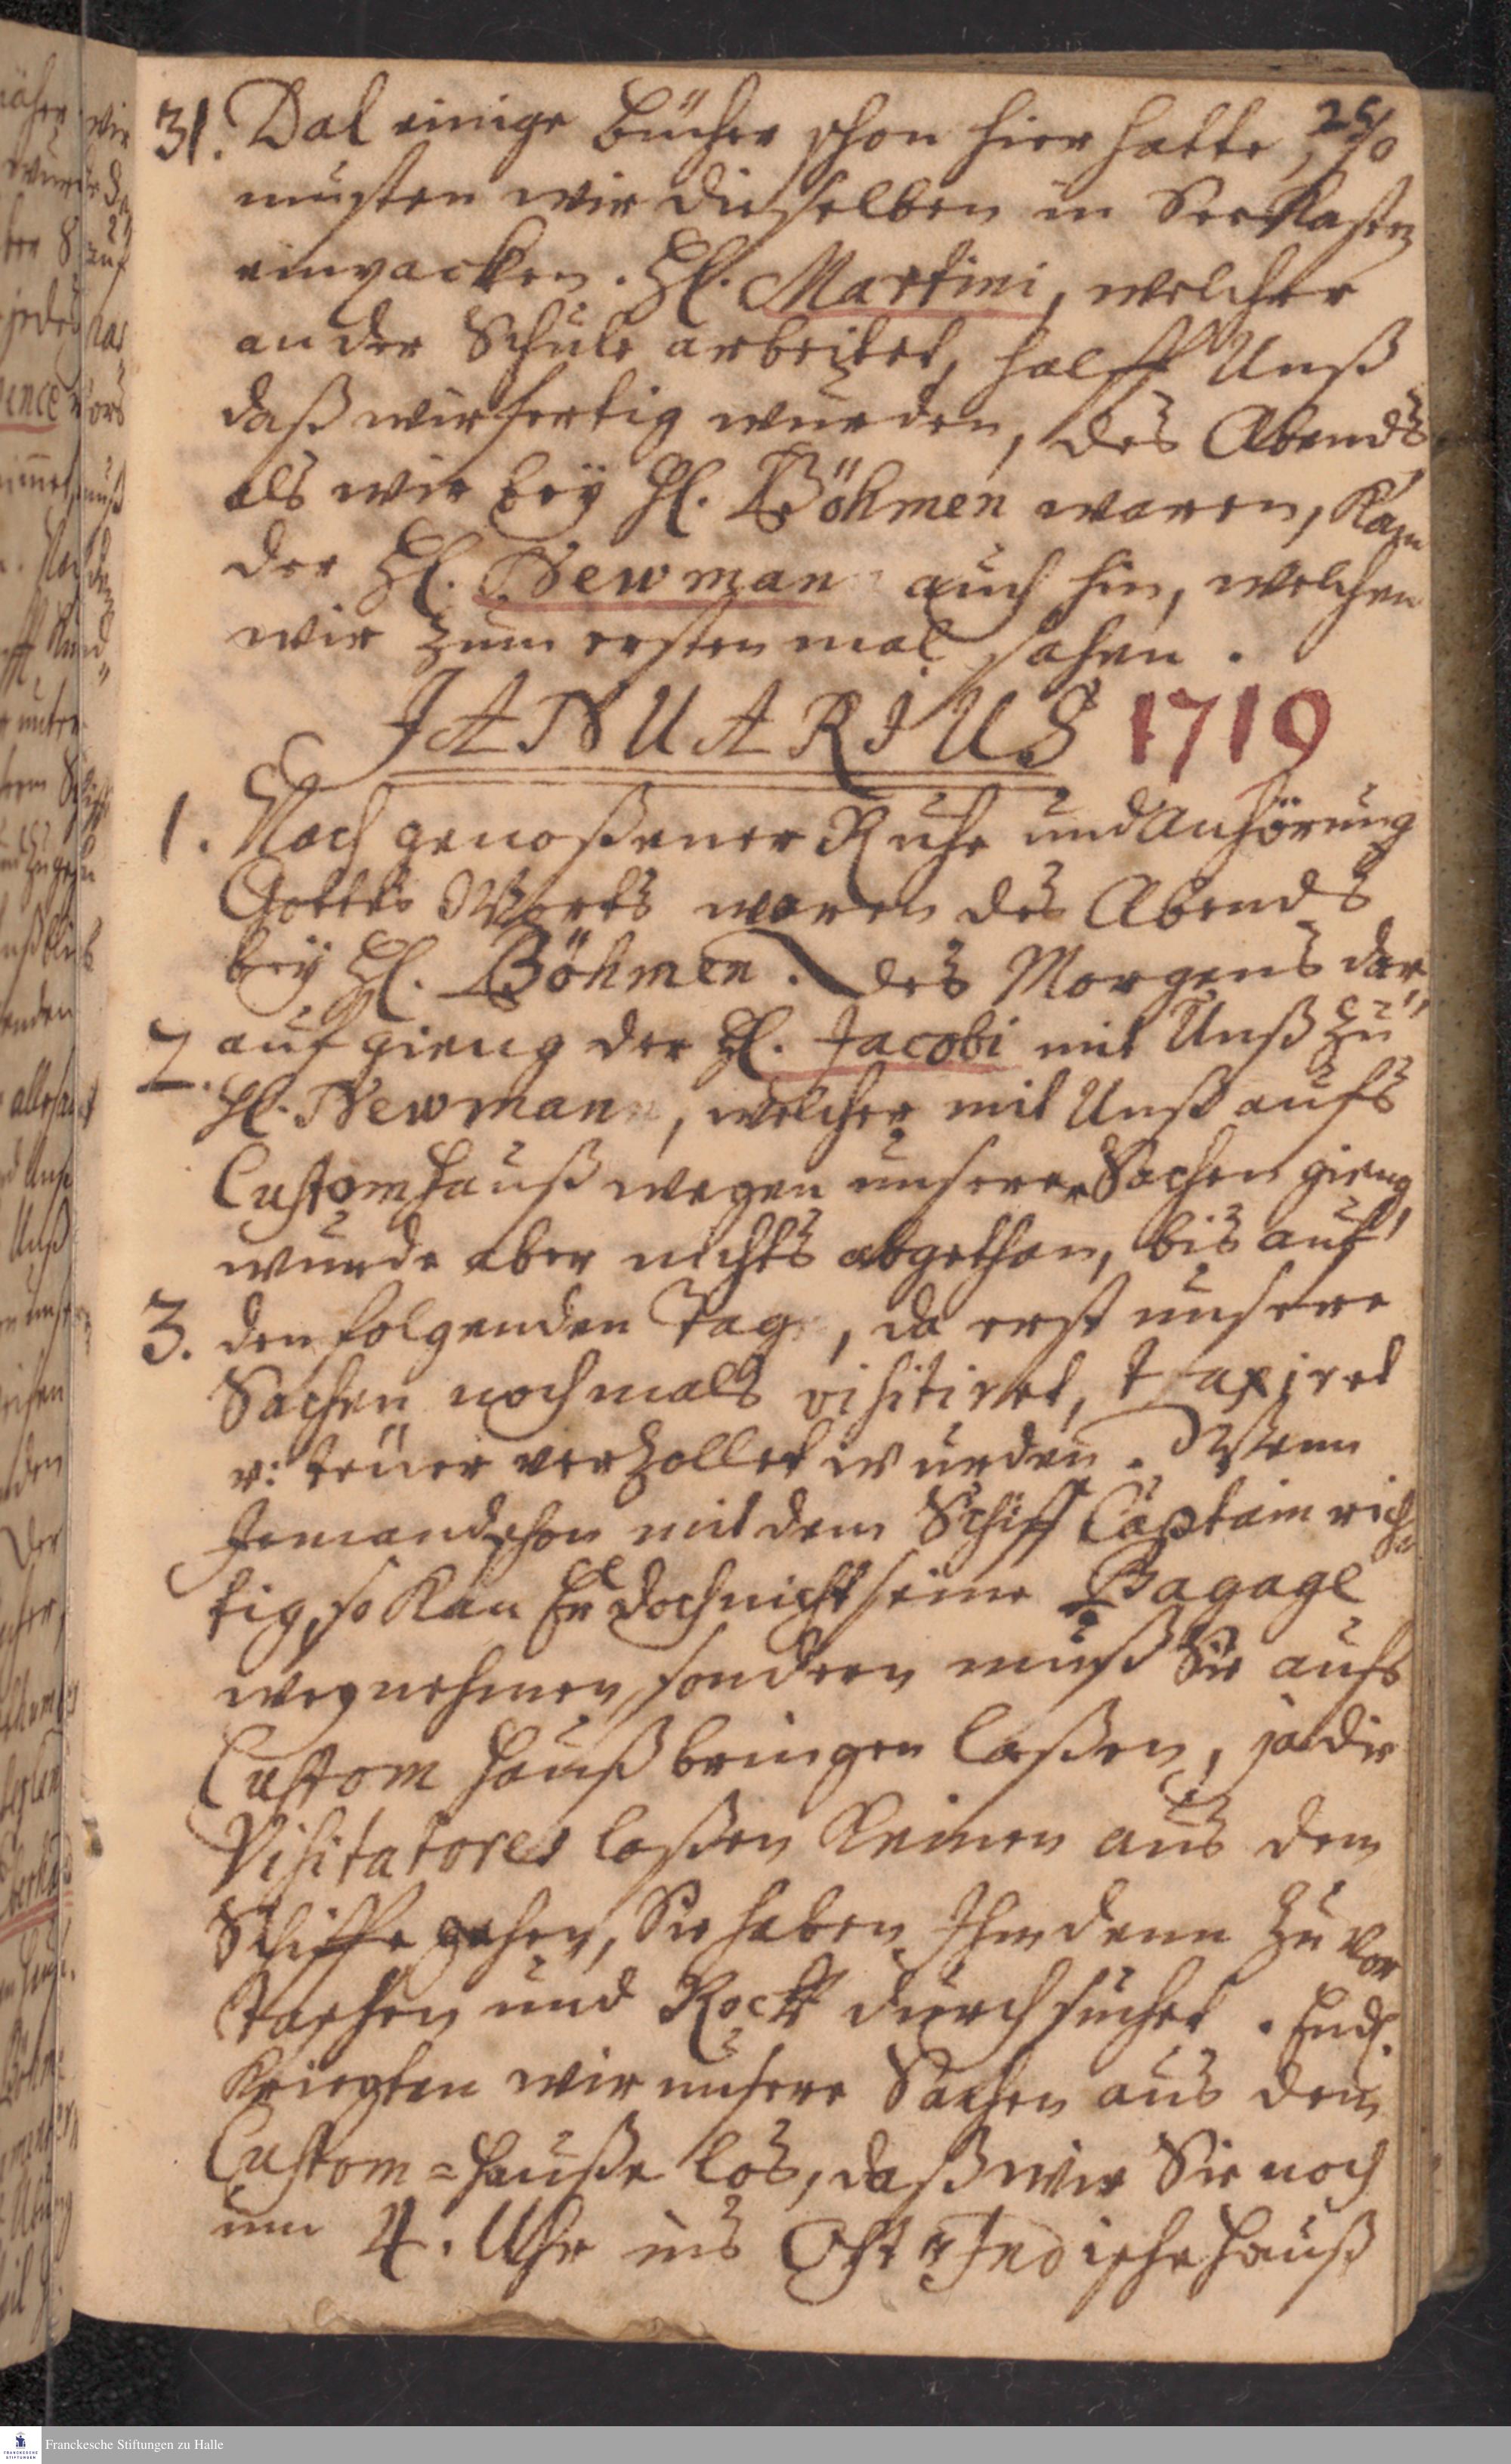 31. Dal einige Bücher schon hier hatte,
musten wir dieselben in See Kasten
einpacken. Hl. Martini, welcher
an der Schule arbeitet, halff Unß
daß wir fertig wurden, des Abends
als wir bey Hl. Böhmen waren, Kam
der Hl. Newman auch hin, welchen
wir zum ersten mal sahen.
JANUARIUS 1719
1. Nach genoßener Ruhe und Anhörung
Gottes Worts waren des Abends
bey Hl. Böhmen. des Morgens dar„
2. auf gieng der Hl. Jacobi mit Unß zu
Hl. Newmann, welcher mit Unß aufs
Customhauß wegen unserer Sachen gieng,
wurde aber nichts abgethan, bis auf
3. den folgenden Tag, da erst unsere
Sachen nochmals visitiret, taxiret
u: teuer verzollet wurden. Wenn
Jemand schon mit dem Schiff Captain rich„
tig, so Kan Er doch nicht seine Bagage
wegnehmen, sondern muß Sie aufs
Custom Hauß bringen laßen, ja die
Visitatores laßen Keinen aus dem
Schiffe gehen, Sie haben Ihm denn zu vor
Taschen und Rock durchsuchet. Endl.
Kriegten wir unsere Sachen aus dem
Custom=Hauße los, daß wir Sie noch
um 4. Uhr ins Ost=Indische Hauß
Franckesche Stiftungen zu Halle